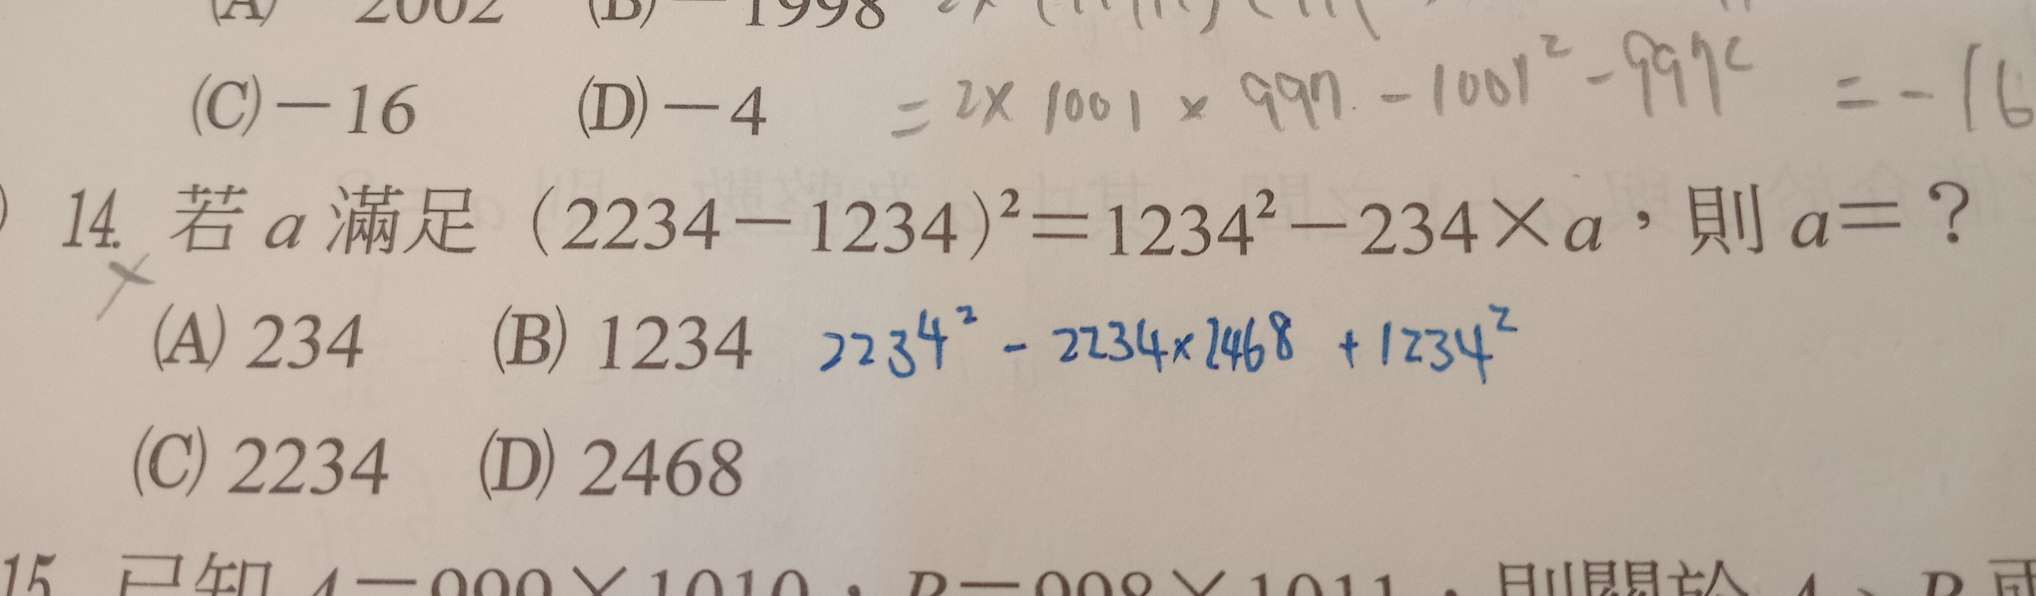 (A) 2002 (B)－1998
(C)－16 (D)－4 = 2× 1001 × 997 - 1001² - 997² = -16
14. 若 a 滿足（2234－1234）²＝1234²－234×a，則 a＝？
(A) 234 (B) 1234 2234² - 2234×2468 + 1234²
(C) 2234 (D) 2468
15 已知 A＝999×1010，B＝998×1011，則關於 A、B